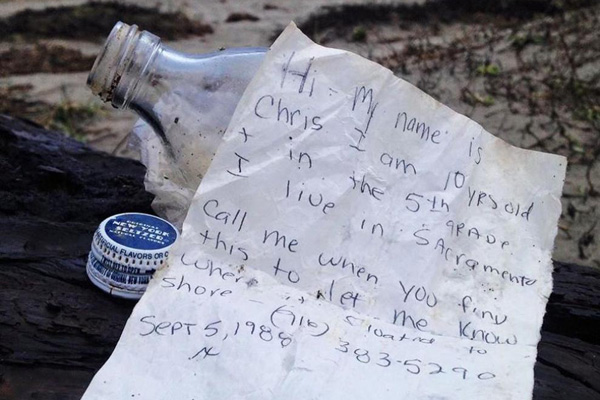 Hi - My name is
Chris I am 10 yrs old
+ in the 5th grade
I live in Sacramento
Call me when you find
this to let me know
where it floated to
shore - (916)
383-5290
Sept 5, 1988
ORIGINAL
NEW YORK
SELTZER
NATURAL FLAVORS OR C